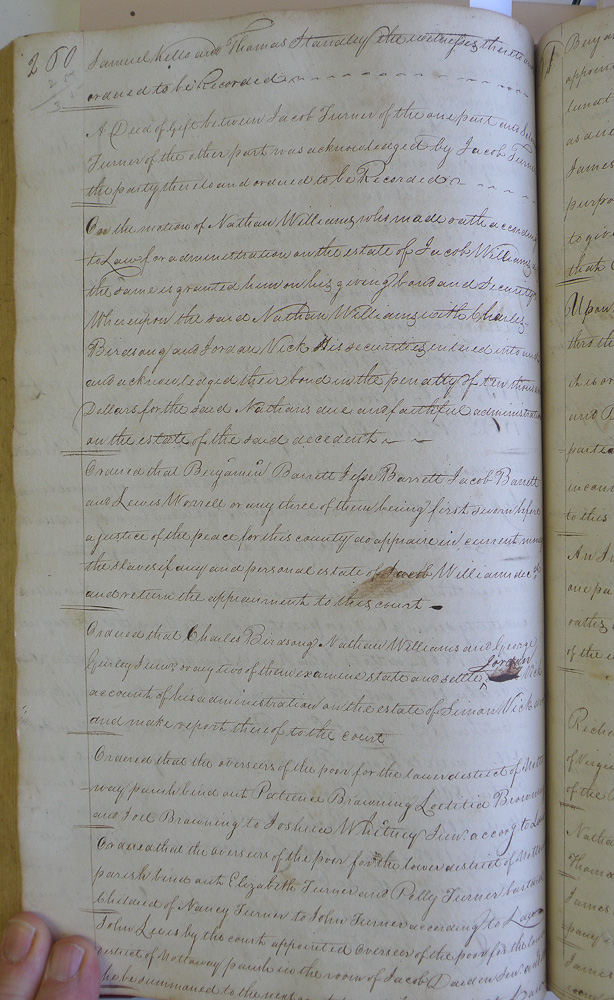 260
Samuel Kello and Thomas Standley the witnesses thereto and
ordered to be Recorded
A Deed of Gift between Jacob Turner of the one part and
Turner of the other part was acknowledged by Jacob Turner
the party thereto and ordered to be Recorded
On the motion of Nathan Williams who made oath according
to Law for administration on the estate of Jacob Williams
the same is granted him on his giving bond and Security
Whereupon the said Nathan Williams with Charles
Birdsong and Jordan Vick His securities entered into and
and acknowledged their bond in the penalty of ten thousand
Dollars for the said Nathans due and faithful administration
on the estate of the said decedent
Ordered that Benjamin Barrett Jesse Barrett Jacob Barrett
and Lewis Worrell or any three of them being first sworn before
a justice of the peace for this county do appraise in current money
the slaves if any and personal estate of Jacob Williams decd.
and return the appraisment to this court
Ordered that Charles Birdsong Nathan Williams and George
Gurley Junr. or any two of them examine state and settle Jordan Vick
account of his administration on the estate of Simon Vick
and make report thereof to the court
Ordered that the overseers of the poor for the lower district of Notto
way parish bind out Patience Browning Loetitia Browning
and Joel Browning to Joshua Whitney Junr. accog to Law
Ordered that the overseers of the poor for the lower district of Nottoway
parish bind out Elizabeth Turner and Polly Turner bastard
Children of Nancy Turner to John Turner according to Law
John Lewis by the court appointed Overseer of the poor for the lower
district of Nottoway parish in the room of Jacob Darden Junr.
he be summoned to the next